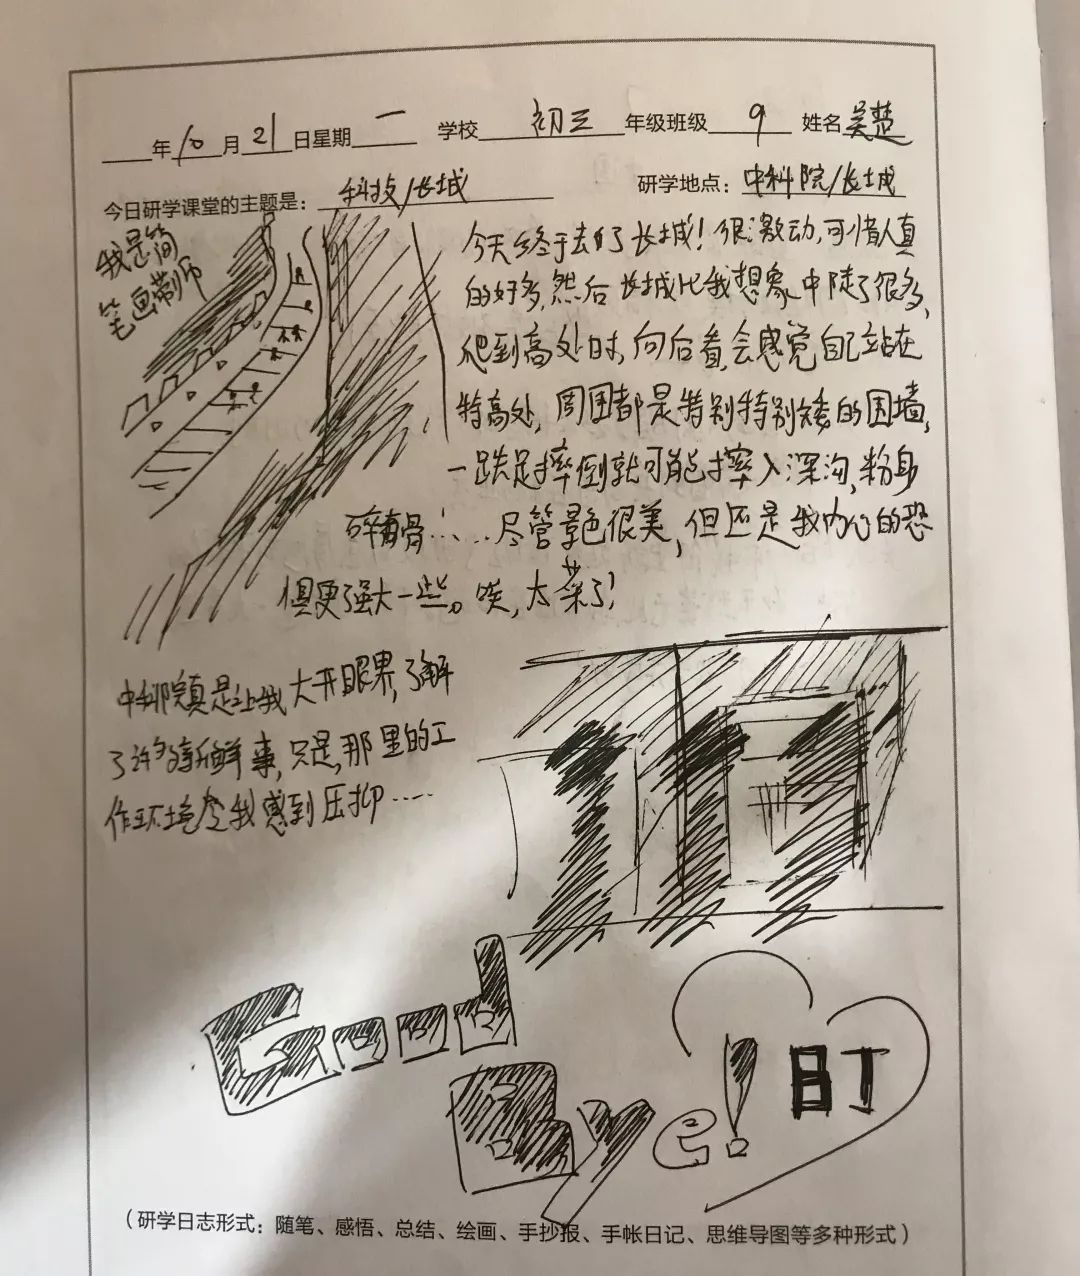 年10月21日星期一 学校 初三 年级班级 9 姓名吴楚
今日研学课堂的主题是：科技/长城 研学地点：中科院/长城
我是简
笔画带师
今天终于去了长城！很激动，可惜人真
的好多，然后长城比我想象中陡了很多，
爬到高处时，向后看，会感觉自己站在
特高处，周围都是特别特别矮的围墙，
一跌足摔倒就可能摔入深沟，粉身
碎骨……尽管景色很美，但还是我内心的恐
惧更强大一些。唉，太菜了！
中科院真是让我大开眼界，了解
了许多新鲜事，只是，那里的工
作环境令我感到压抑……
Good
Bye!
BJ
（研学日志形式：随笔、感悟、总结、绘画、手抄报、手帐日记、思维导图等多种形式）